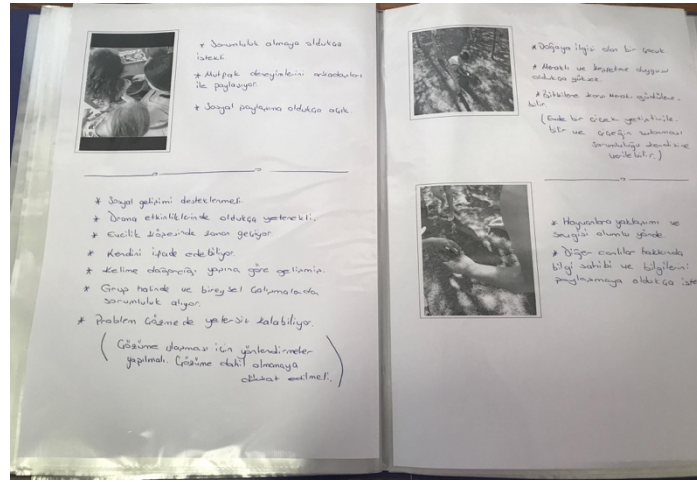 * Sorumluluk almaya oldukça
istekli.
* Mutfak deneyimlerini arkadaşları
ile paylaşıyor.
* Sosyal paylaşıma oldukça açık.
* Sosyal gelişimi desteklenmeli.
* Drama etkinliklerinde oldukça yetenekli.
* Evcilik köşesinde zaman geçiriyor.
* Kendini ifade edebiliyor.
* Kelime dağarcığı yaşına göre gelişmiş.
* Grup halinde ve bireysel çalışmalarda
sorumluluk alıyor.
* Problem çözmede yetersiz kalabiliyor.
( Çözüme ulaşması için yönlendirmeler
yapılmalı. Çözüme dahil olmamaya
dikkat edilmeli. )
* Doğaya ilgisi olan bir çocuk
* Meraklı ve keşfetme duygusu
oldukça yüksek.
* Bitkilere karşı merakı güdülene-
bilir.
( Evde bir çiçek yetiştirile-
bilir ve çiçeğin sulanması
sorumluluğu
verilebilir. )
* Hayvanlara yaklaşımı ve
sevgisi olumlu yönde.
* Diğer canlılar hakkında
bilgi sahibi ve bilgilerini
paylaşmaya oldukça iste